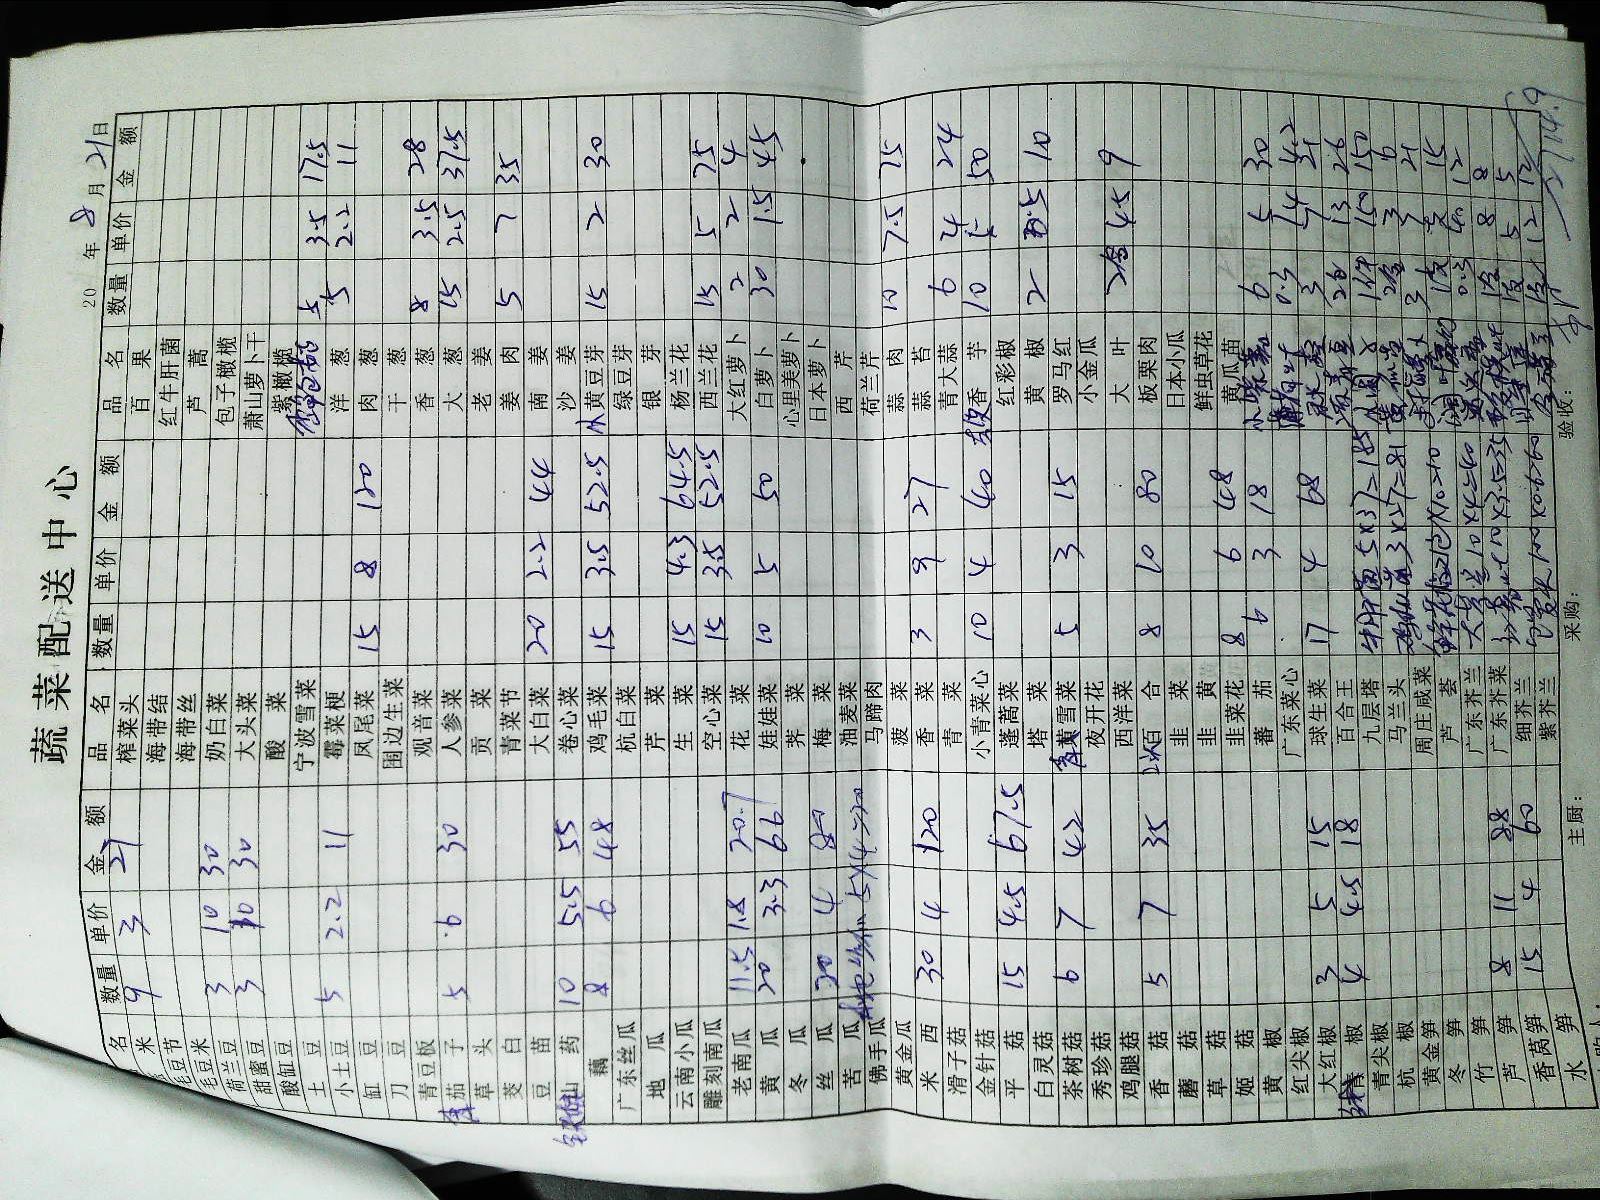 蔬菜配送中心
20 年 8 月 21 日
名 数量 单价 金额
米 9 3 27
毛豆节
毛豆米
荷兰豆 3 10 30
甜蜜豆 3 10 30
酸缸豆
土豆
小土豆 5 2.2 11
缸豆
刀豆
青豆板
茄子 5 6 30
草头
茭白
豆苗
山药 10 5.5 55
藕 8 6 48
广东丝瓜
地瓜
云南小瓜
雕刻南瓜
老南瓜 11.5 1.8 20.7
黄瓜 20 3.3 66
冬瓜
丝瓜 20 4 80
苦瓜 5×4=20
佛手瓜
黄金瓜
米西 30 4 120
滑子菇
金针菇
平菇 15 4.5 67.5
白灵菇
茶树菇 6 7 42
秀珍菇
鸡腿菇
香菇 5 7 35
蘑菇
草菇
姬菇
黄椒
红尖椒
大红椒 3 5 15
青椒 4 4.5 18
青尖椒
杭椒
黄金笋
冬笋
竹笋
芦笋 8 11 88
香莴笋 15 4 60
水笋
品名 数量 单价 金额
榨菜头
海带结
海带丝
奶白菜
大头菜
酸菜
宁波雪菜
霉菜梗
凤尾菜 15 8 120
围边生菜
观音菜
人参菜
贡菜
青菜节
大白菜 20 2.2 44
卷心菜
鸡毛菜 15 3.5 52.5
杭白菜
芹菜
生菜 15 4.3 64.5
空心菜 15 3.5 52.5
花菜
娃娃菜 10 5 50
荠菜
梅菜
油麦菜
马蹄肉
菠菜
香菜 3 9 27
青菜
小青菜心 10 4 40
蓬蒿菜
塔菜
黄雪菜 5 3 15
夜开花
西洋菜
百合 8 10 80
韭菜
韭黄
韭菜花 8 6 48
蕃茄 6 3 18
广东菜心
球生菜 17 4 68
百合王
九层塔 牛肝菌 5×37=185
马兰头 3×27=81
周庄咸菜
芦荟
广东芥兰 10×4=40
广东芥菜 10×3.5=35
细芥兰 100×0.6=60
紫芥兰
品名 数量 单价 金额
百果
红牛肝菌
芦蒿
包子橄榄
萧山萝卜干
紫橄榄
洋葱 5 3.5 17.5
肉葱 5 2.2 11
干葱
香葱 8 3.5 28
大葱 15 2.5 37.5
老姜
姜肉 5 7 35
南姜
沙姜
黄豆芽 15 2 30
绿豆芽
银芽
杨兰花
西兰花 15 5 75
大红萝卜 2 2 4
白萝卜 30 1.5 45
心里美萝卜
日本萝卜
西芹
荷兰芹
蒜肉 10 7.5 75
蒜苔
青大蒜 6 4 24
香芋 10 5 50
红彩椒
黄椒 2 5 10
罗马红
小金瓜
大叶 2 4.5 9
板栗肉
日本小瓜
鲜虫草花
黄瓜苗
6 5 30
0.3 14 4.2
3 7 21
2 13 26
150 150
2 3 6
3 7 21
15
0.3 40 12
8 8
5 5
12 12
2714.9
主厨：
采购：
验收：